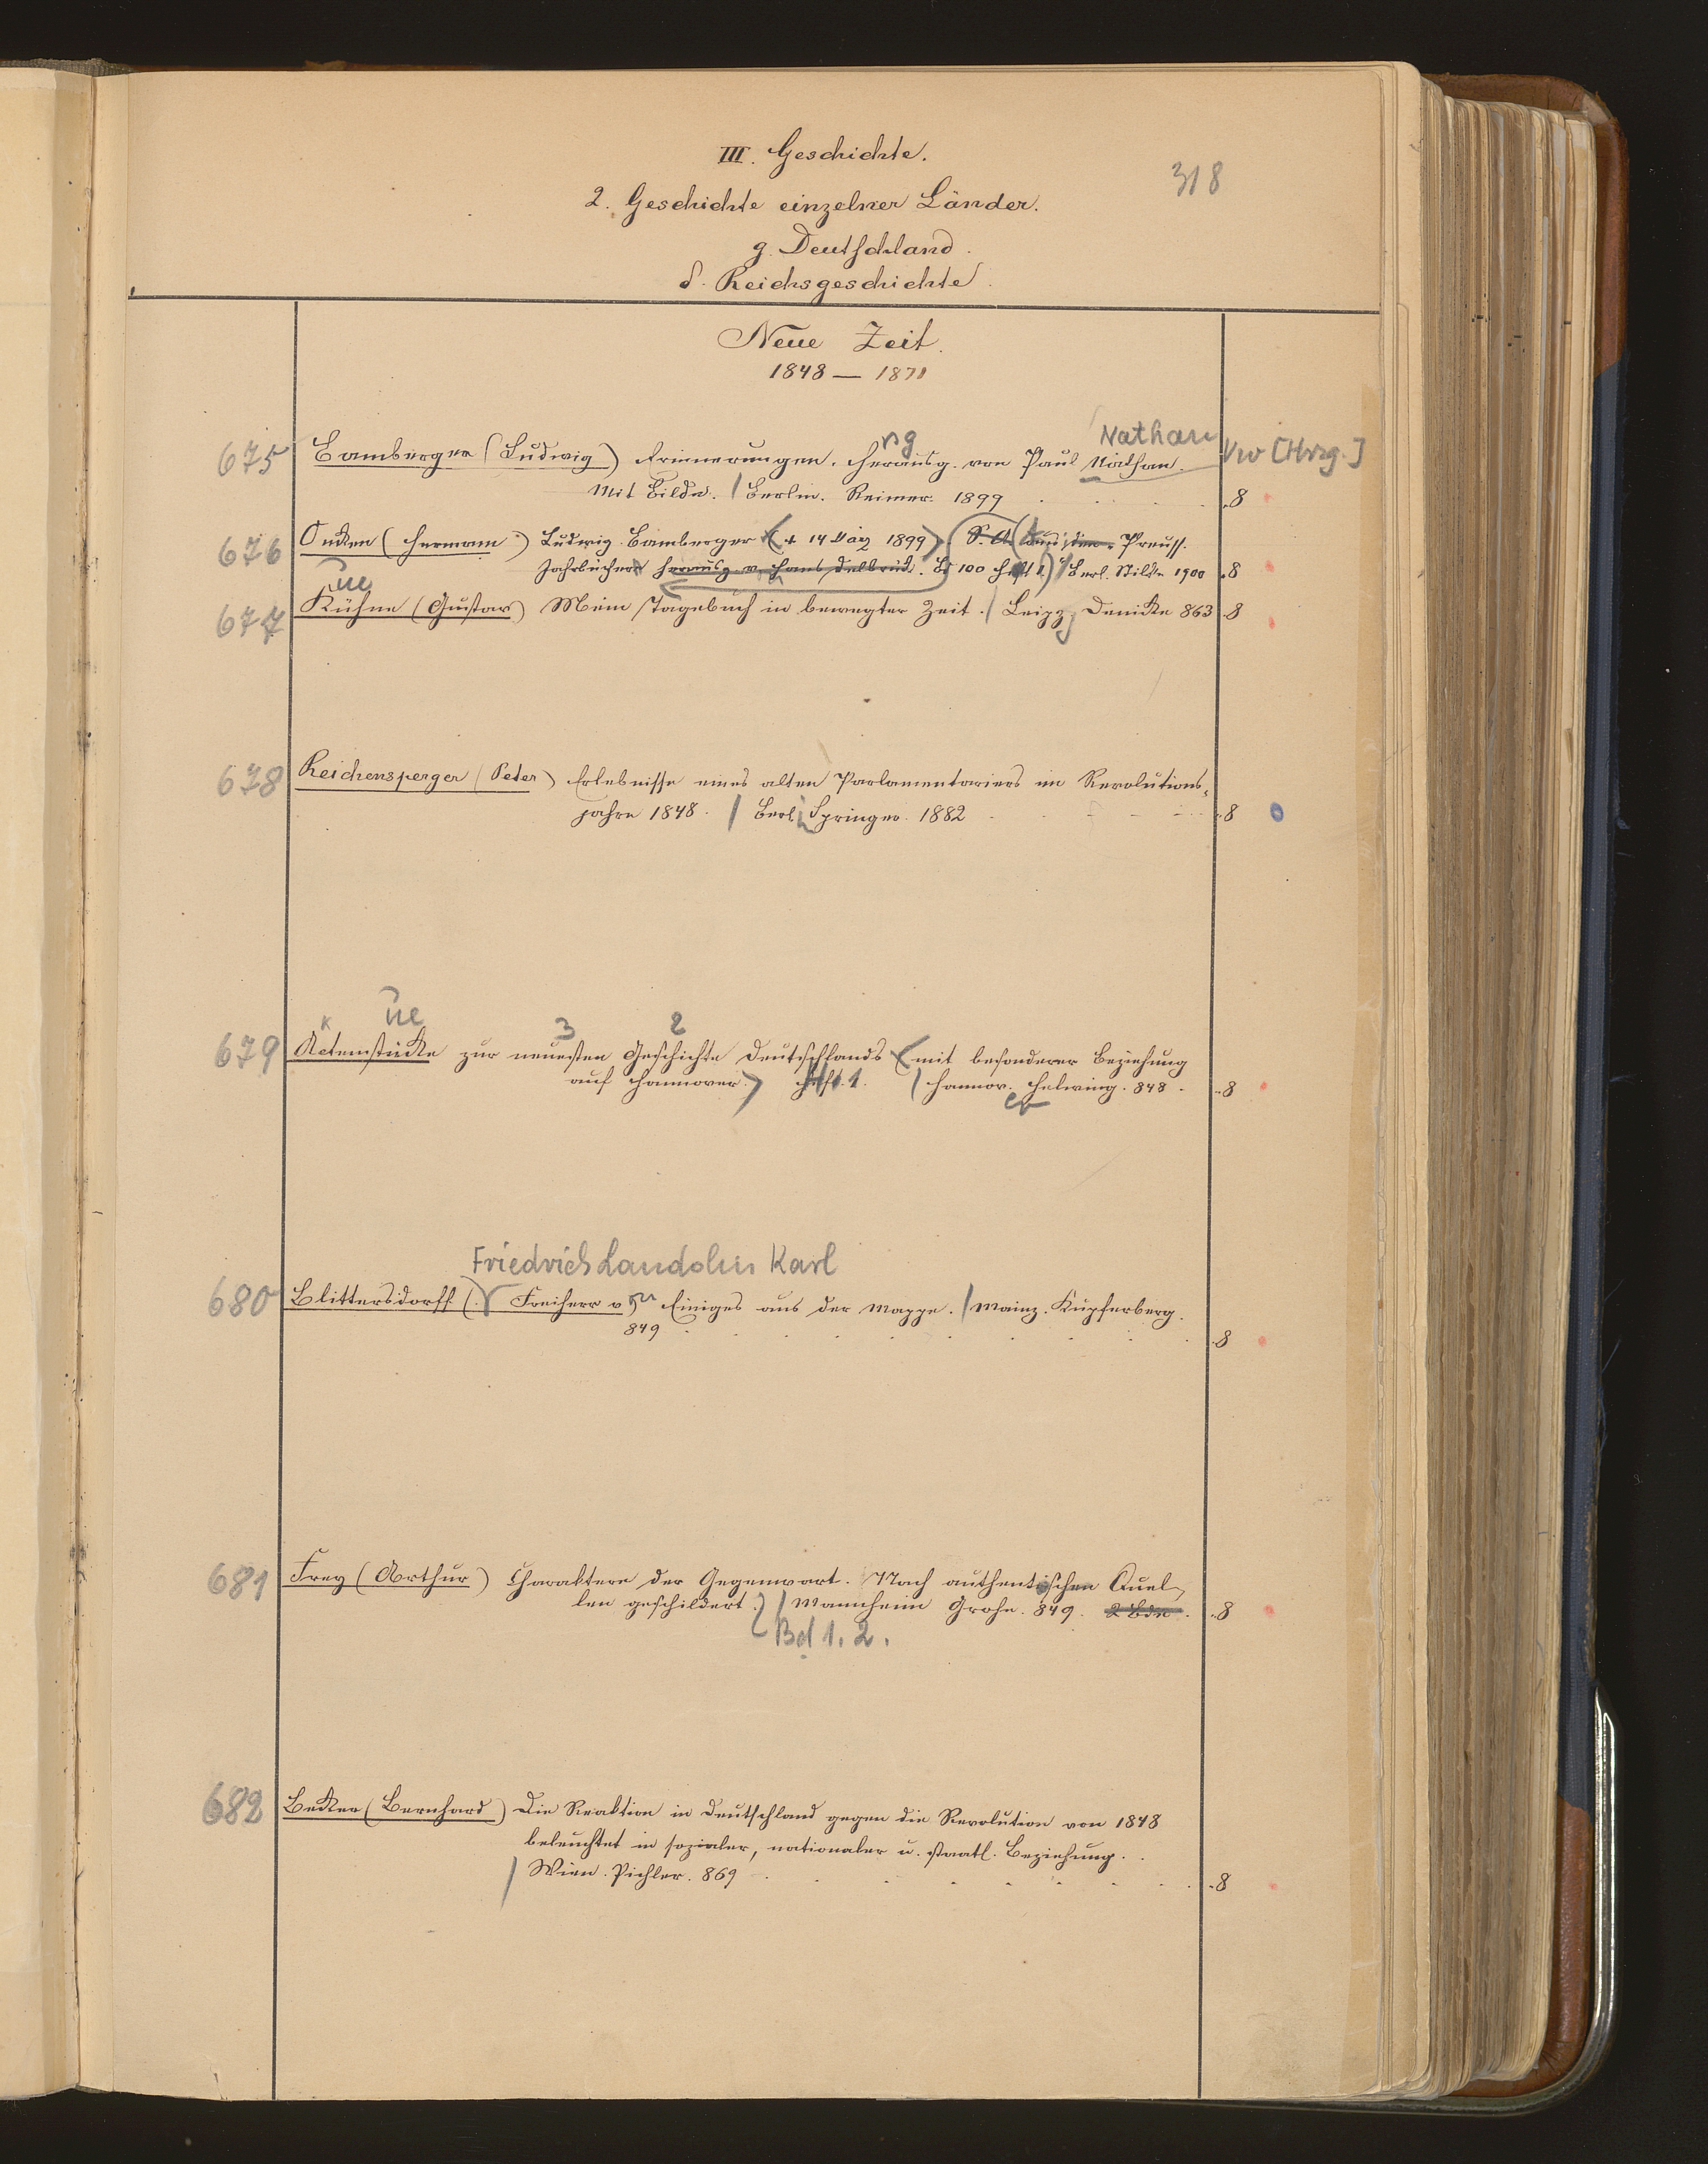 III. Geschichte.
318
2. Geschichte einzelner Länder.
g. Deutschland.
δ. Reichsgeschichte.
Neue Zeit.
1848 — 1871
rg Nathan
675 Bamberger (Ludwig) Erinnerungen. Herausg. von Paul Nathan. Vw [Hrsg.]
Mit Bildn. / Berlin. Reimer. 1899 8
676 Oncken (Hermann) Ludwig Bamberger († 14 März 1899) (S. A. aus: den Preuss.
Jahrbüchern herausg. v. Hans Delbrück. Bd 100 Heft 1) / Berl. Stilke 1900 8
ue
677 Kühne (Gustav) Mein Tagebuch in bewegter Zeit. / Leipz. Denicke 863 8
678 Reichensperger (Peter) Erlebnisse eines alten Parlamentariers im Revolutions-
jahre 1848. / Berl. Springer. 1882 8
k ue 3 2
679 Actenstücke zur neuesten Geschichte Deutschlands (mit besonderer Beziehung
auf Hannover) Heft. 1. / Hannov. Helwing. 848. 8
Friedrich Landolin Karl
680 Blittersdorff (. Freiherr v.) Einiges aus der Mappe. / Mainz. Kupferberg.
849 8
681 Frey (Arthur) Charaktere der Gegenwart. Nach authentischen Quel-
len geschildert. / Mannheim Grohe. 849. 2 Bde. 8
Bd 1. 2.
682 Becker (Bernhard) Die Reaktion in Deutschland gegen die Revolution von 1848
beleuchtet in sozialer, nationaler u. staatl. Beziehung.
/ Wien. Pichler. 869 8